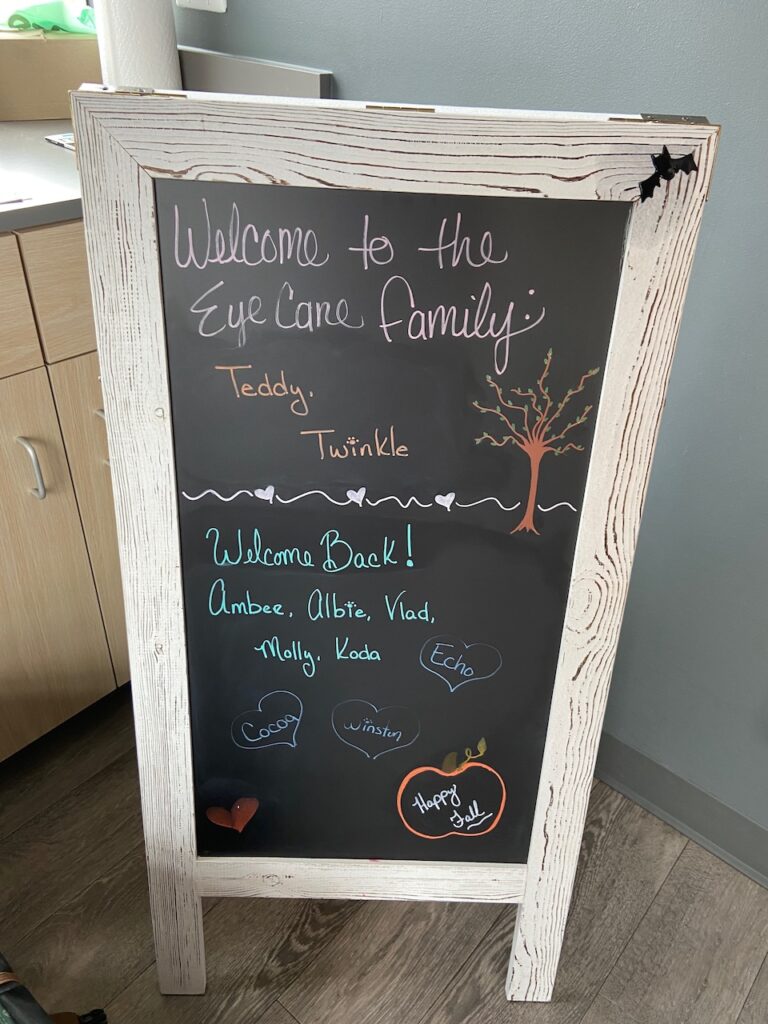 Welcome to the
Eye Care family
Teddy,
Twinkle
Welcome Back!
Amber, Albie, Vlad,
Molly, Koda
Echo
Cocoa
Winston
Happy
Fall